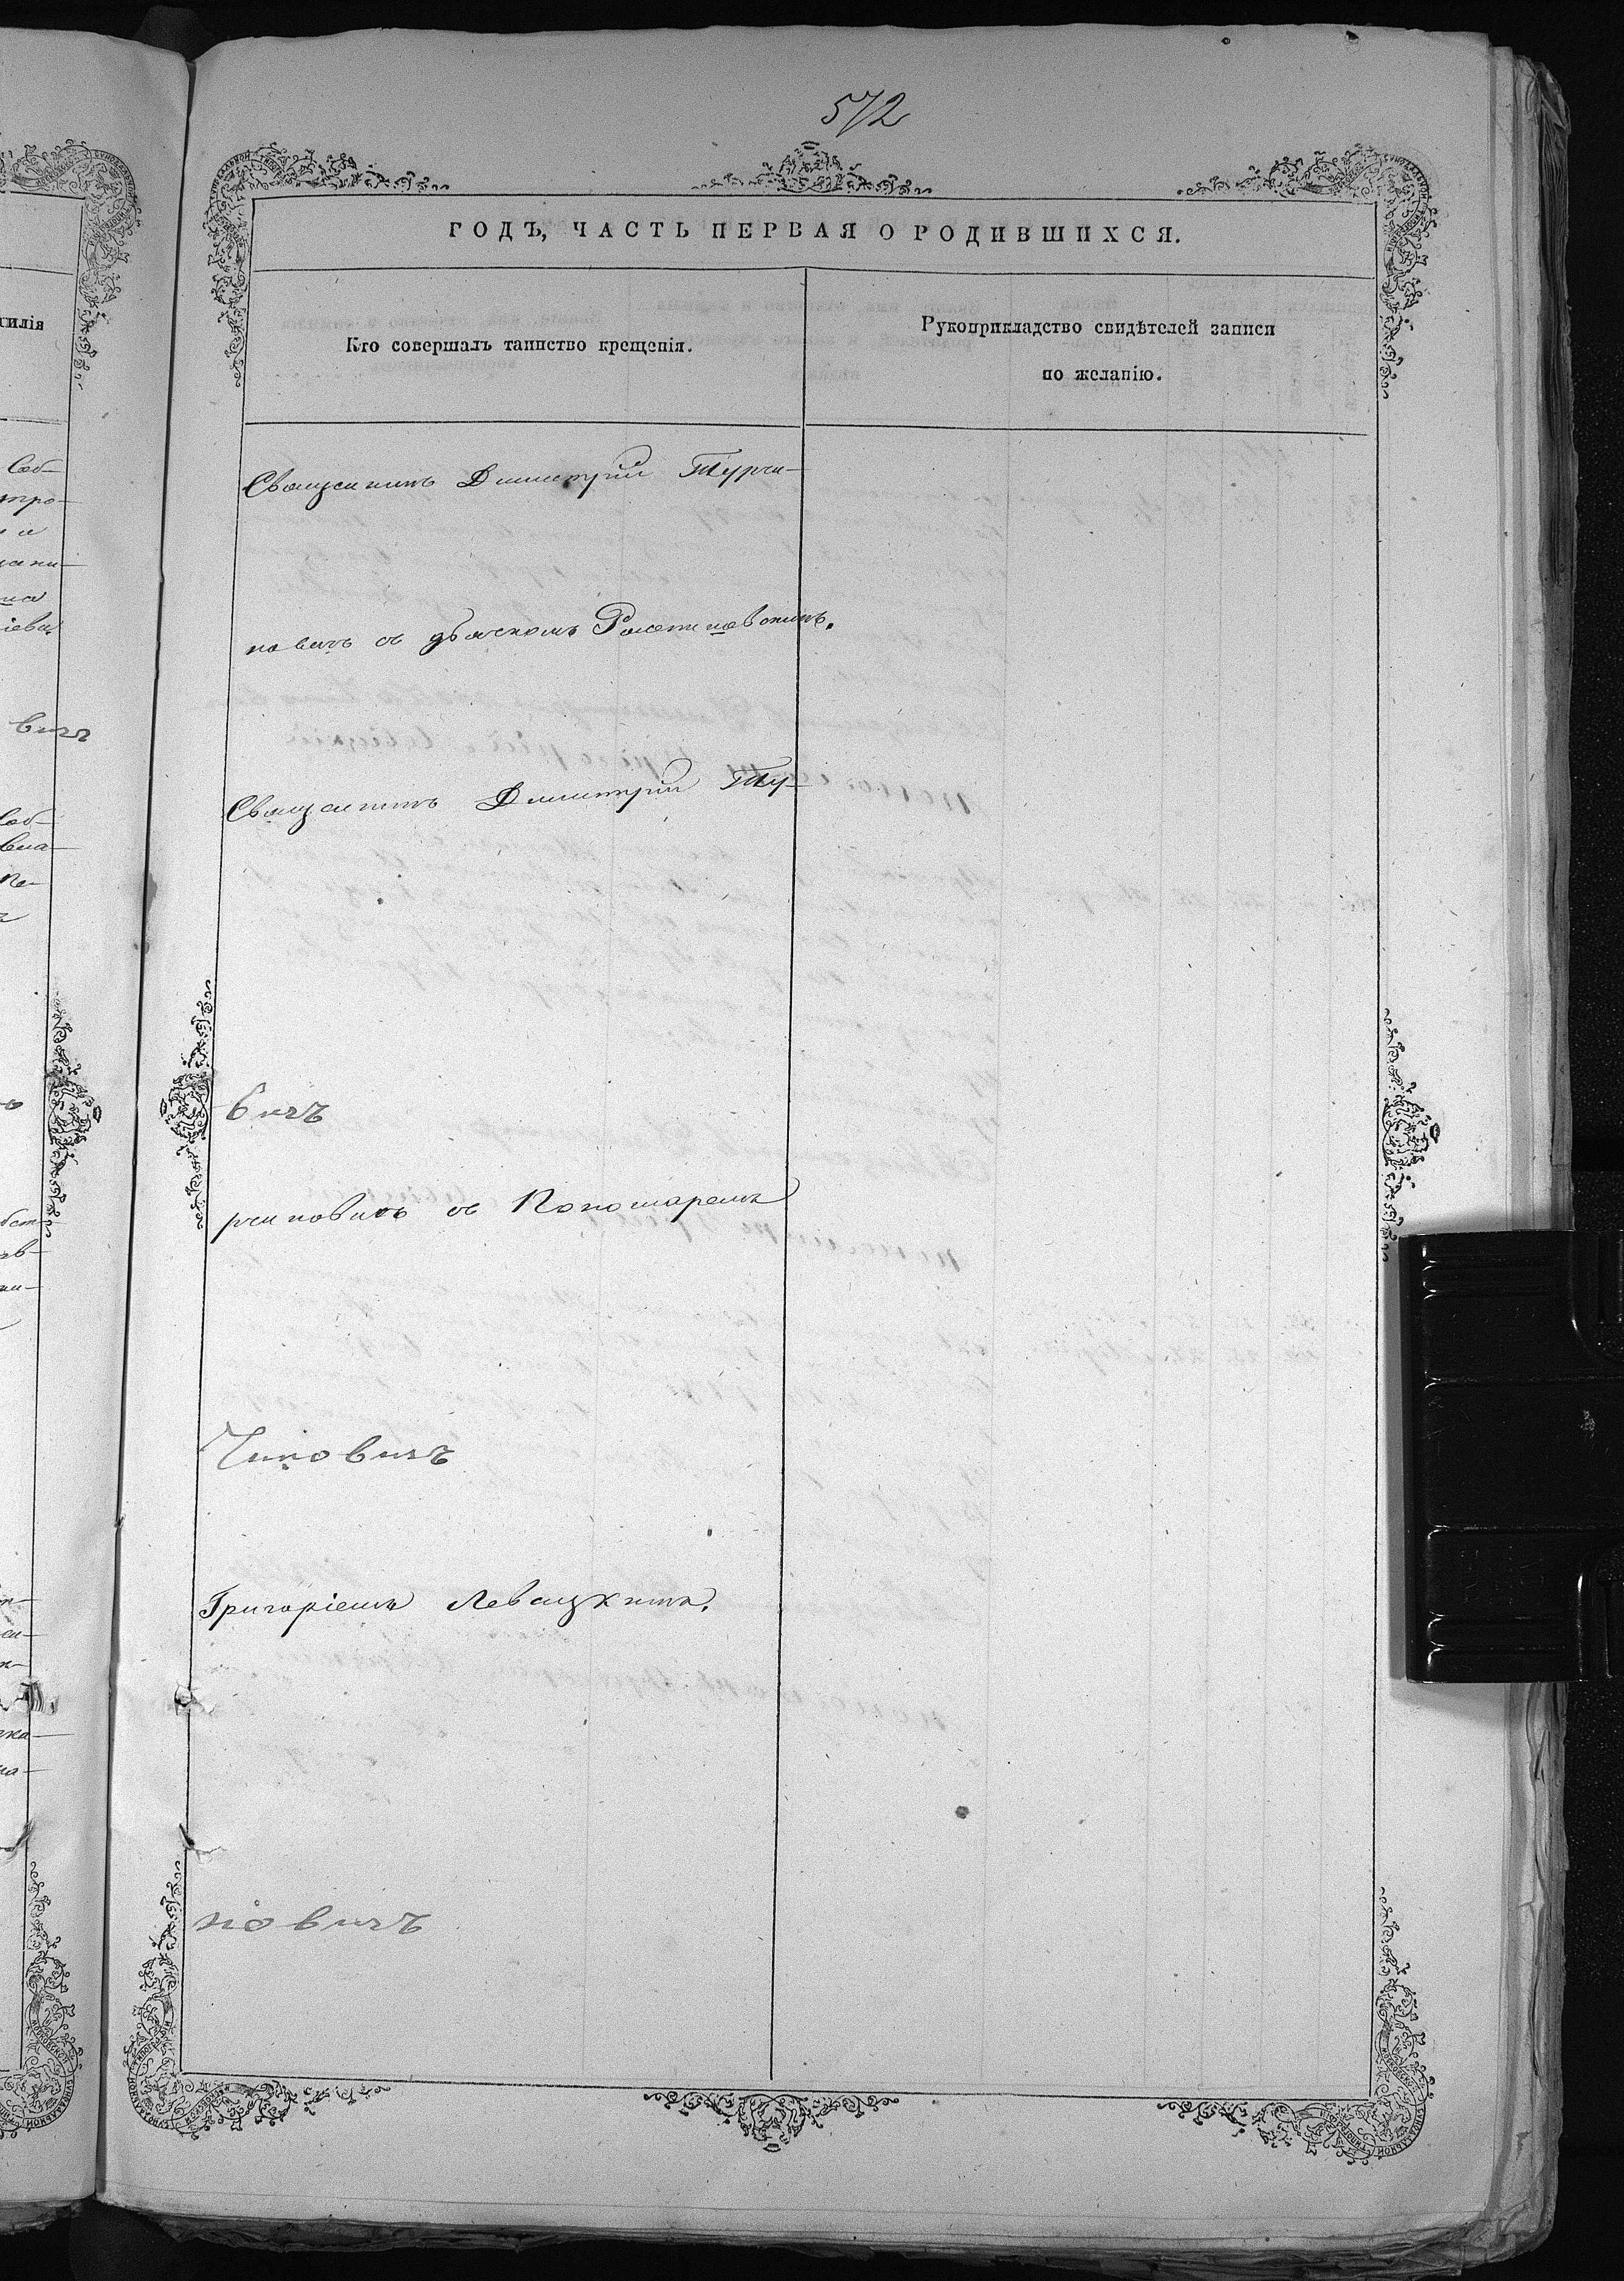 572
ГОДЪ, ЧАСТЬ ПЕРВАЯ О РОДИВШИХСЯ.
Кто совершалъ таинство крещенія.
Рукоприкладство свидѣтелей записи
по желанію.
Священникъ Димитрій Турчи-
новичъ съ дьячкомъ
Священникъ Димитрій Ту-
вичъ
рчиновичъ съ Пономаремъ
Чиновичъ
Григоріемъ Левицкимъ.
новичъ